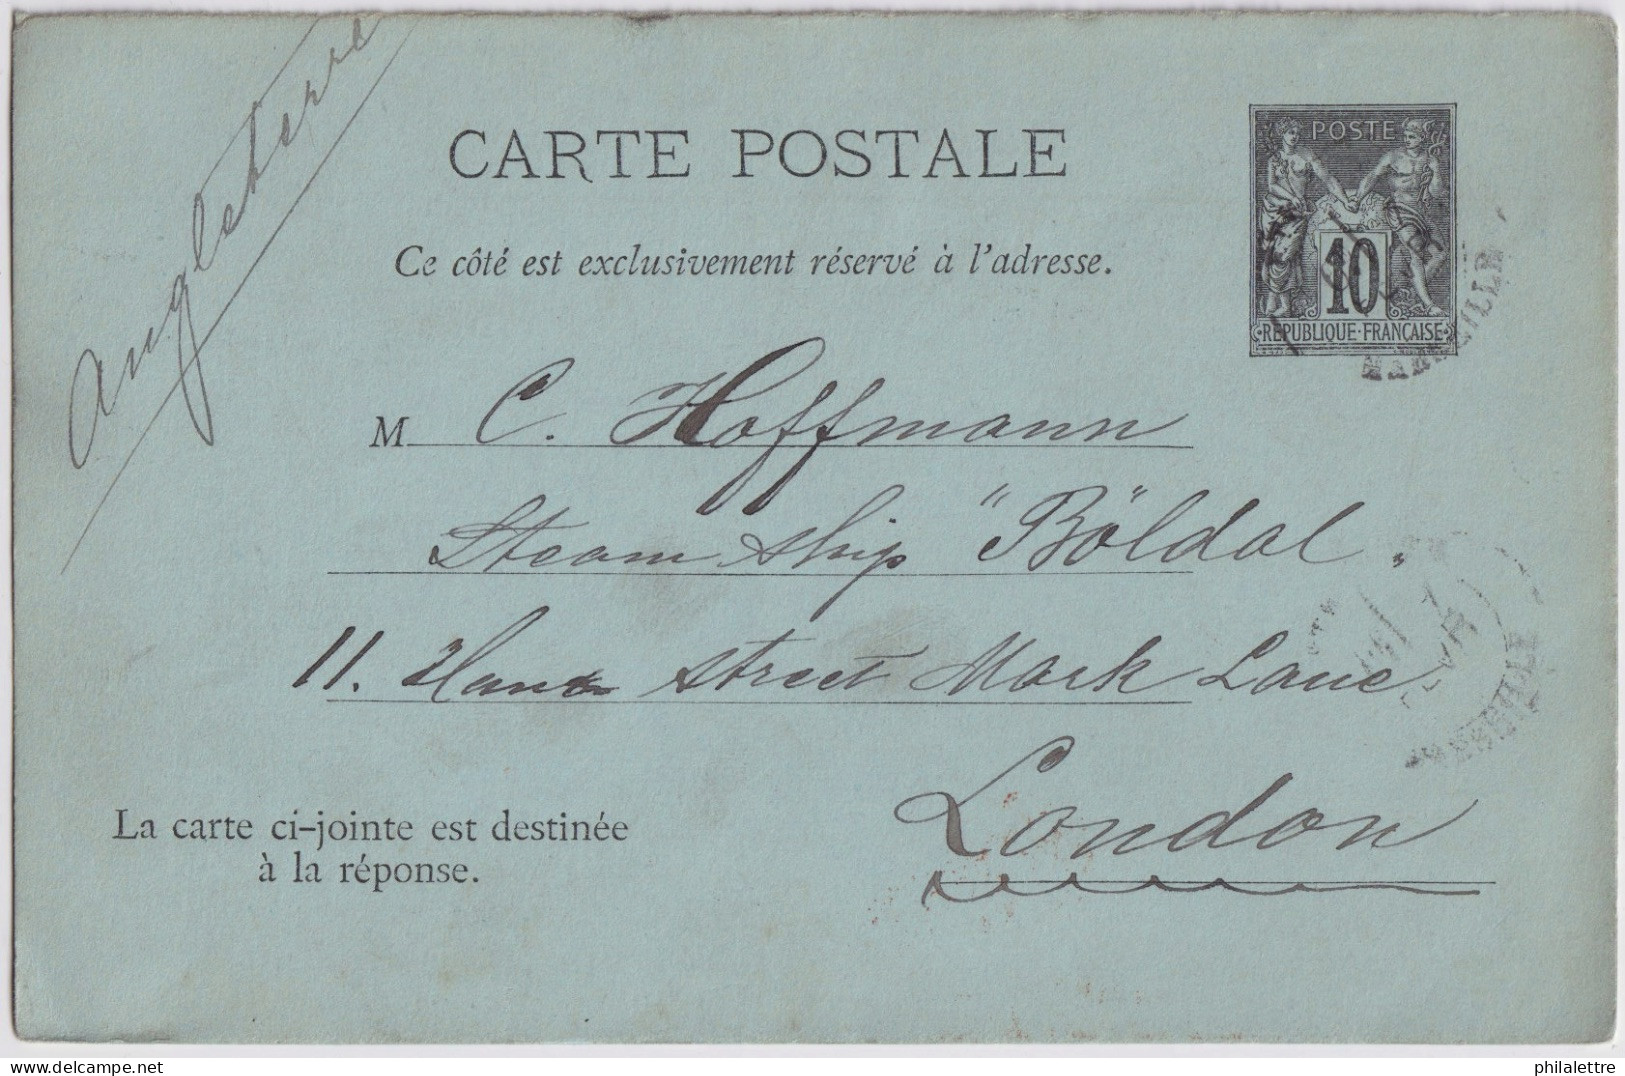 Angleterre
CARTE POSTALE
Ce côté est exclusivement réservé à l'adresse.
POSTE
10
REPUBLIQUE·FRANÇAISE
MARSEILLE
M C. Hoffmann
Steam ship "Böldal".
11. street Mark Lane
MARSEILLE
London
La carte ci-jointe est destinée
à la réponse.
delcampe.net
philalettre